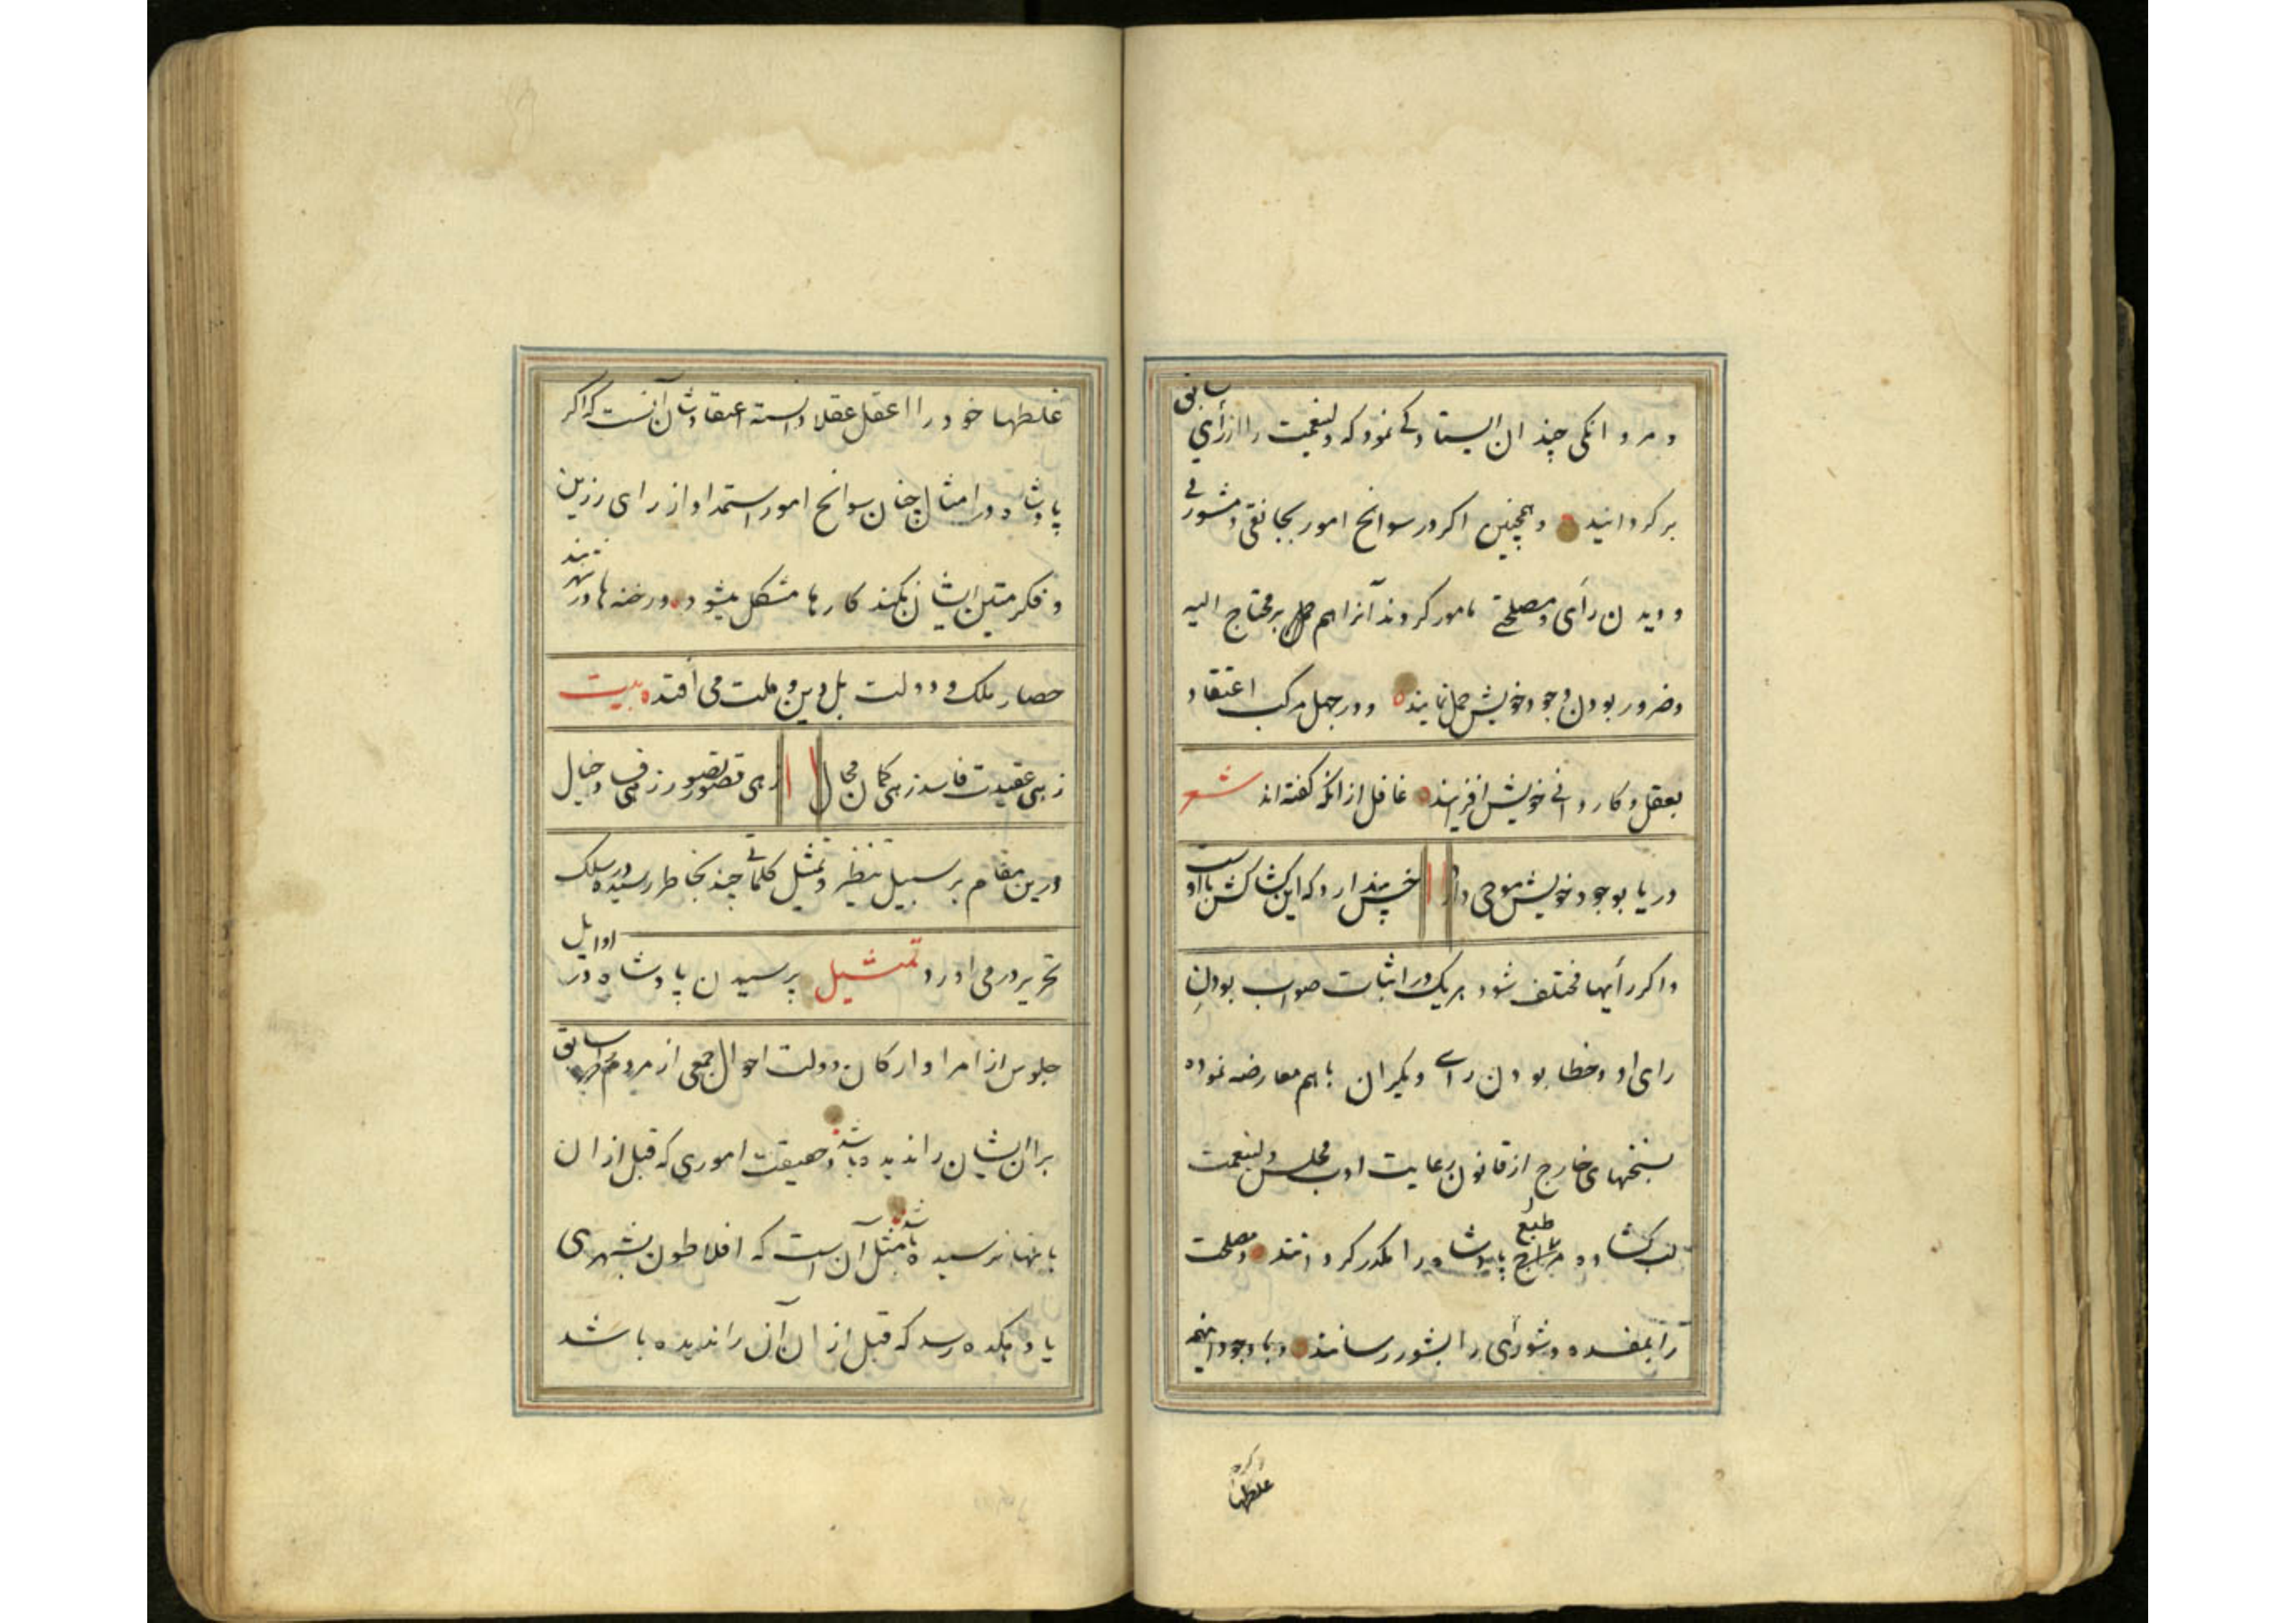 و مردانکی چندان ایستادکی نمود که ولینعمت را از رأی سابق
برکردانید و همچنین اکر در سوانح امور بجانقی و مشورتی
و دیدن رأی و مصلحتی مامور کردند آنرا هم بر محتاج الیه
و ضرور بودن وجود خویش حمل نمایند و در جهل مرکب اعتقاد
بعقل و کاردانی خویش افزایند غافل از انکه کفته اند شعر
دریا بوجود خویش موجی دارد
خس پندارد که این کشاکش با اوست
و اکر رأیها مختلف شود هر یک در اثبات صواب بودن
رای او و خطا بودن رای دیکران باهم معارضه نموده
بسخنهای خارج از قانون رعایت ادب مجلس ولینعمت
لب کشاده طبع پادشاه را مکدر کردانند و مصلحت
را بمفسده و شورای را بشور رسانند و با وجود اینهمه
غلطها
غلطها خود را اعقل عقلا دانسته اعتقادشان آنست که اکر
پادشاه در امثال چنان سوانح امور استمداد از رای رزین
و فکر متین ایشان نکند کارها مشکل میشود و رخنه ها در
حصار ملک و دولت بل دین و ملت می افتد بیت
زهی عقیدت فاسد زهی کمان محال
زهی قصور تصور زهی خیال
درین مقام بر سبیل تنظیر و تمثیل کلماتی چند بخاطر رسیده در سلک
تحریر درمی اورد تمثیل پرسیدن پادشاه در اوایل
جلوس از امرا و ارکان دولت احوال جمعی از مردم سابق
بر ان ایشان را ندیده باشد و حقیقت اموری که قبل از ان
بانها نرسیده باشد مثل آن است که افلاطون بشهری
یا دهکده رسد که قبل از ان آن را ندیده باشد